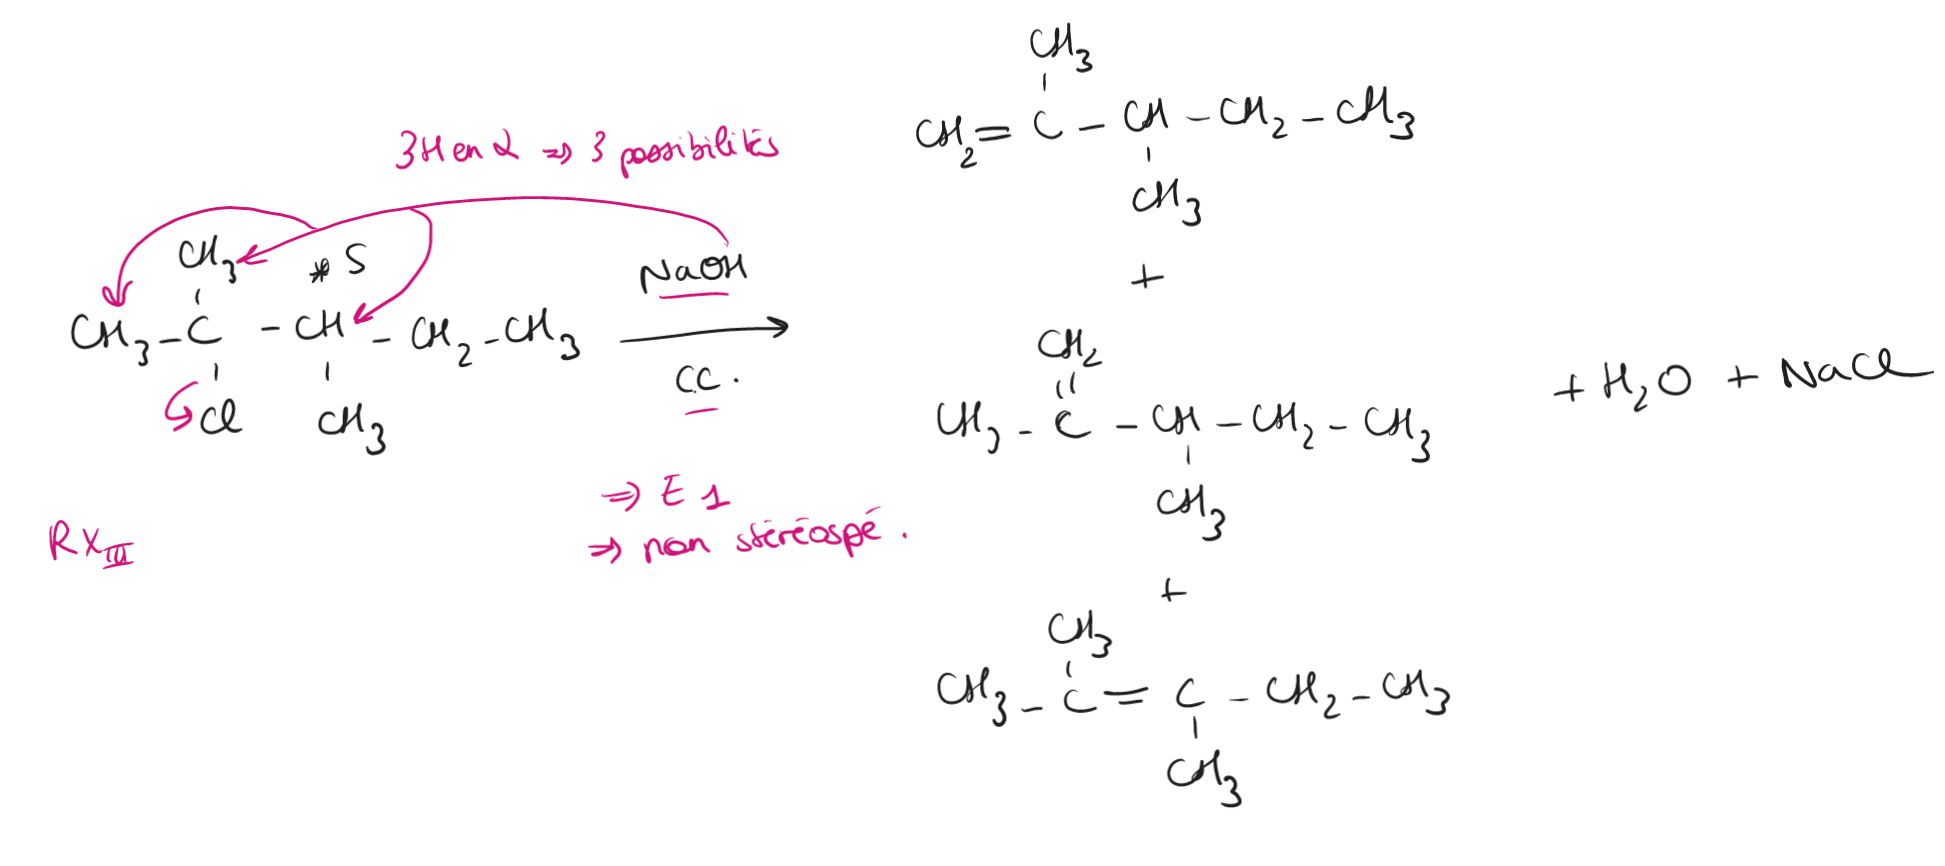 3H en α ⇒ 3 possibilités
CH3
* S
CH3 - C - CH - CH2 - CH3
Cl
CH3
NaOH
CC.
RXIII
⇒ E 1
⇒ non stéréospé.
CH3
CH2 = C - CH - CH2 - CH3
CH3
+
CH2
CH3 - C - CH - CH2 - CH3
CH3
+ H2O + NaCl
+
CH3
CH3 - C = C - CH2 - CH3
CH3